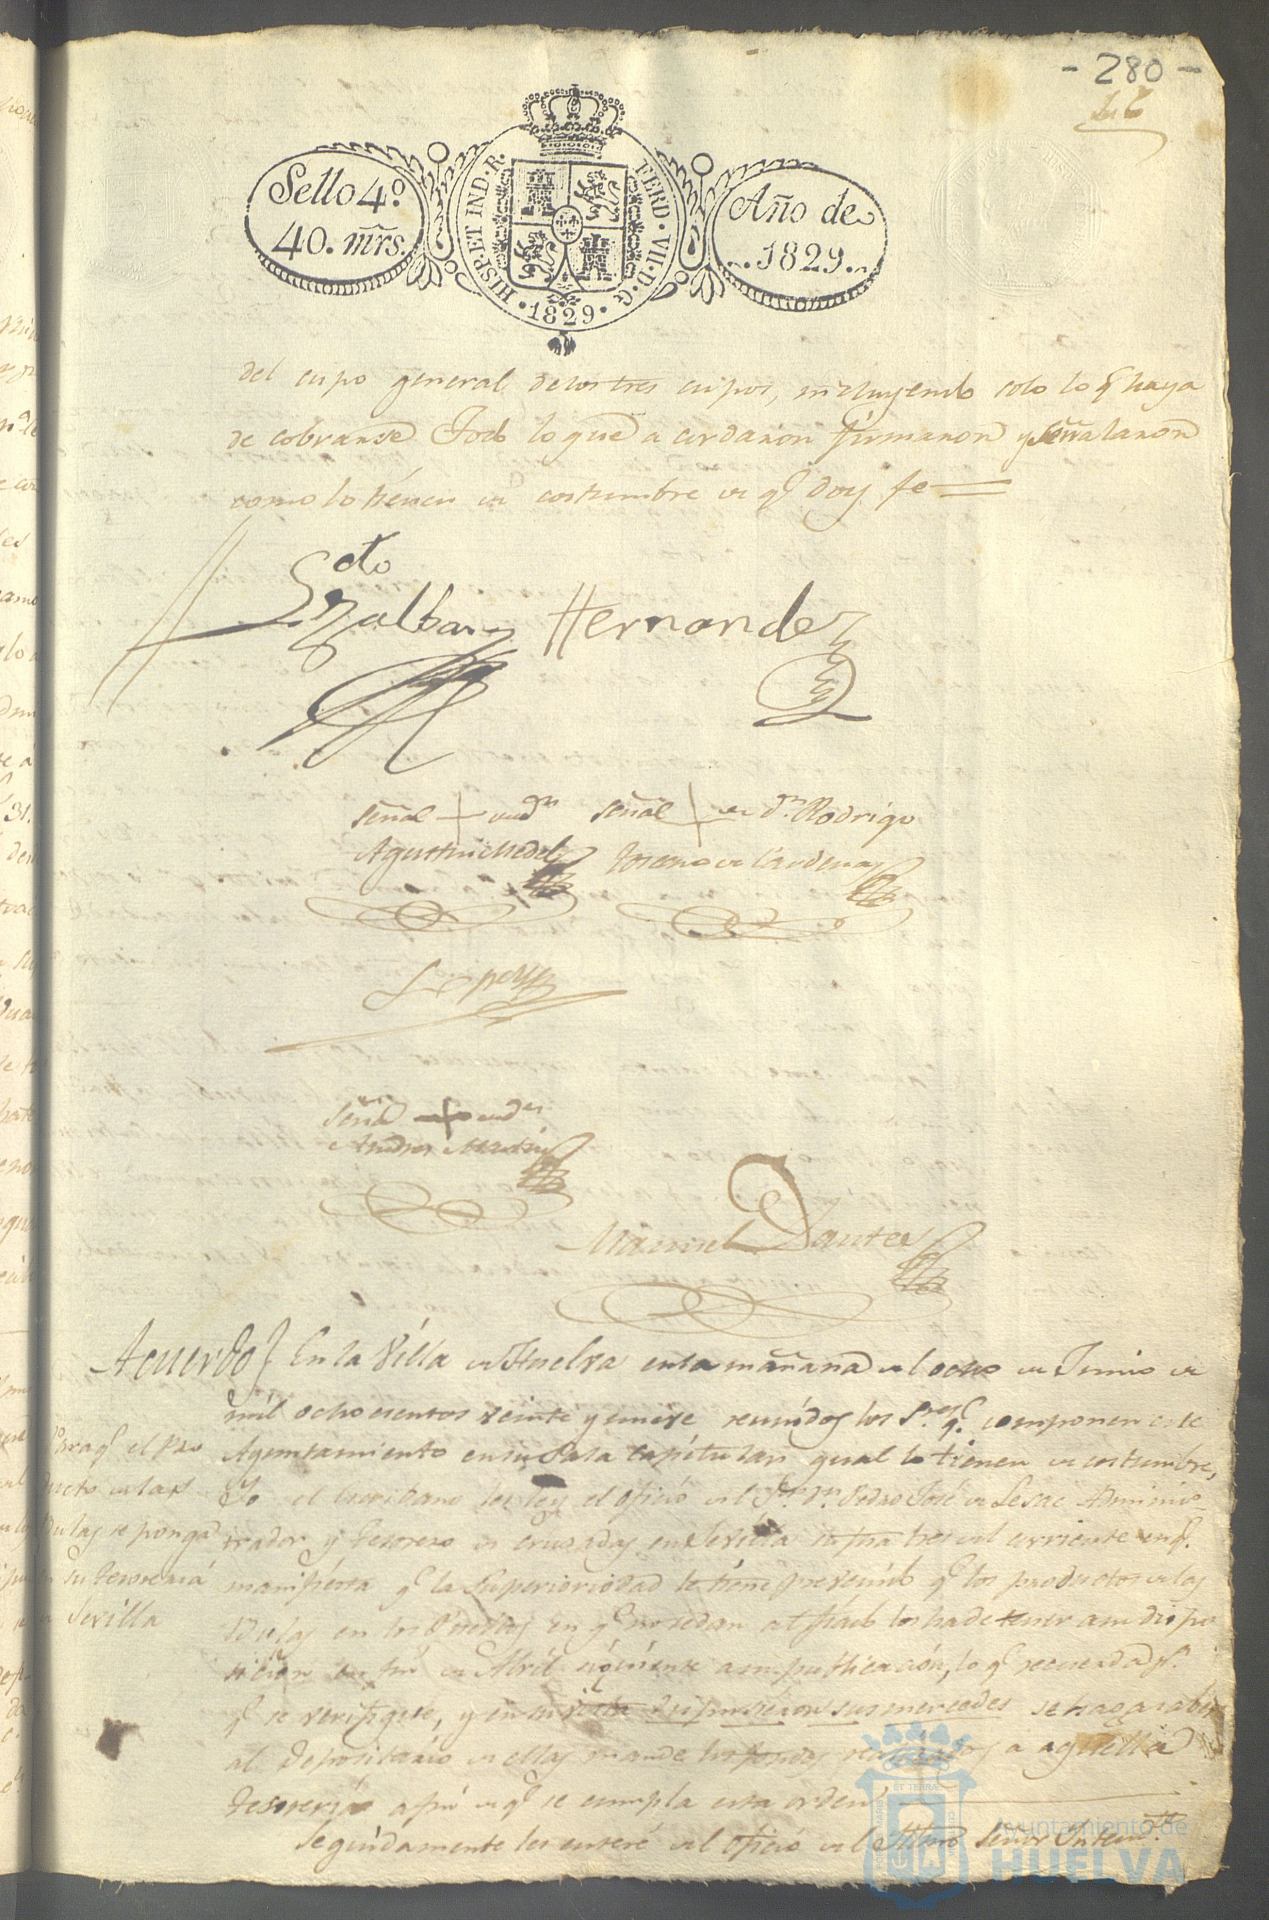 - 280 -
Sello 4º.
40. mrs.
HISP. ET IND. R. FERD. VII. D. G.
1829
Año de
1829.
del cupo general de los tres cupos, incluyendo solo lo q.e haya
de cobrarse Todo lo que acordaron firmaron y señalaron
como lo tienen de costumbre de q.e doy fe
Hernandez
señal + de D.n
Agustin
señal + de D.n Rodrigo
de Cardenas
Lopez
señal + de D.n
Andres Martin
Manuel Dante
Acuerdo} En la Villa de Huelva en la mañana del ocho de Junio de
mil ochocientos veinte y nueve reunidos los S.res q.e componen este
Ayuntamiento en su Sala Capitular qual lo tienen de costumbre,
Yo el Escribano les ley el oficio del S.or D.n Pedro José de Lesac Adminis-
trador y Tesorero de cruzadas en Sevilla su fha tres del corriente en q.e
manifiesta q.e la Superioridad le tiene prevenido q.e los productos de las
Bulas en los Pueblos en q.e no se dan al fiado los ha de tener a su dispo
sicion en fin de Abril siguiente a su publicacion, lo q.e recuerda p.a
q.e se verifique, y en su vista dispusieron sus mercedes se haga saber
al Depositario de ellas mande los fondos recaudados a aquella
Tesoreria a fin de q.e se cumpla esta orden
Seguidamente les enteré del oficio del Señor Intend.te
Para q.e el pro
ducto de las
Bulas se ponga
en su tesoreria
de Sevilla
Ayuntamiento de
HUELVA